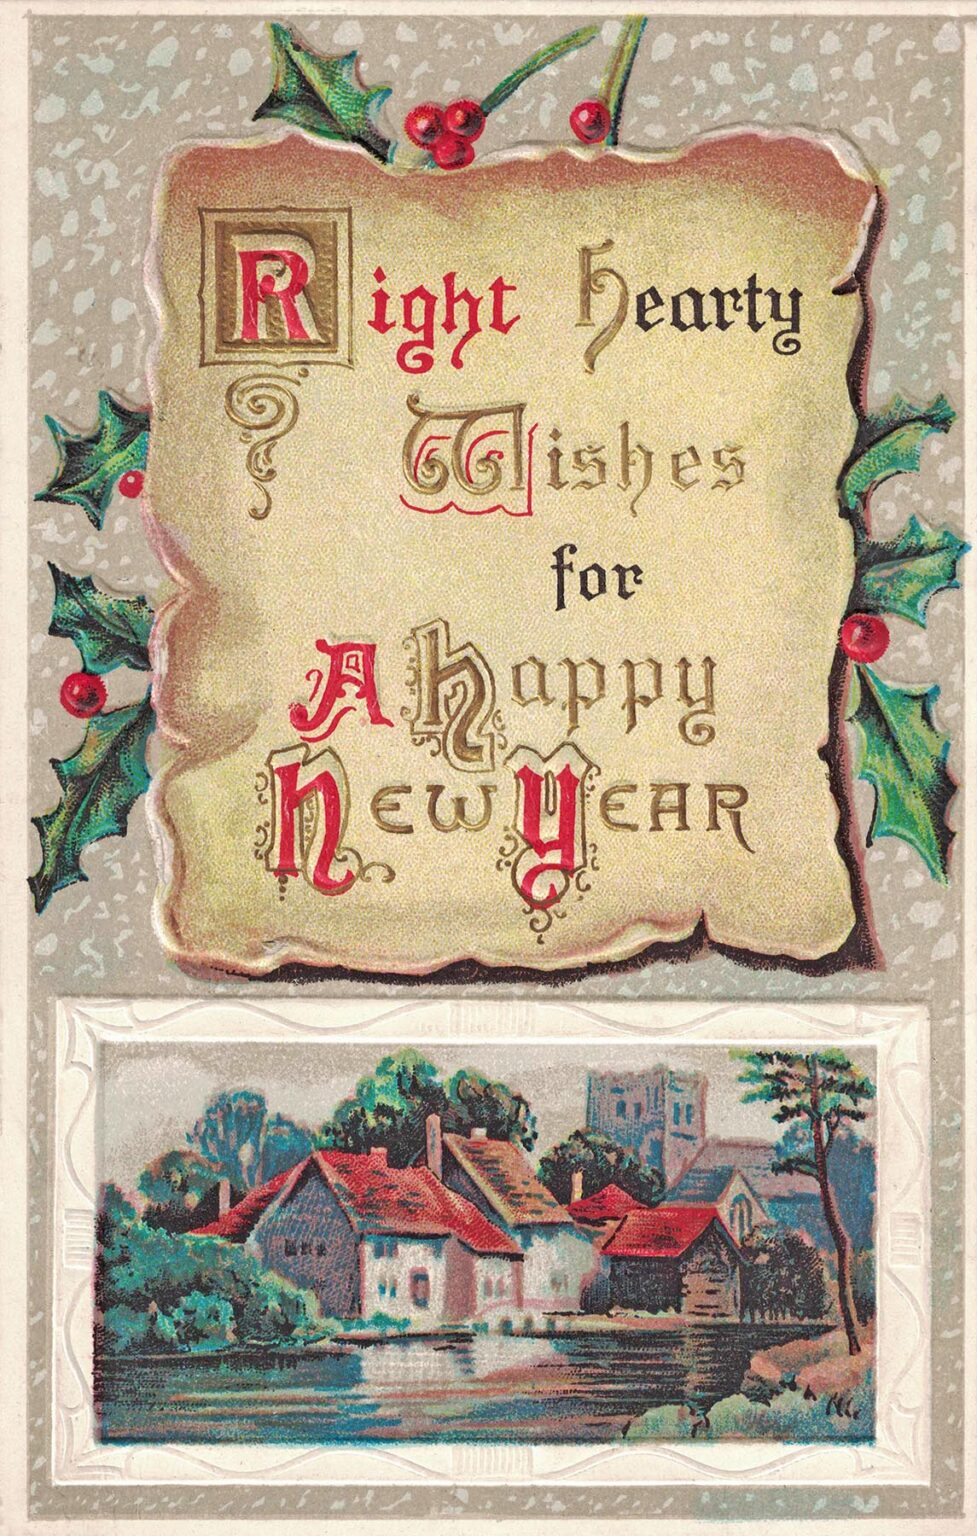 Right hearty
Wishes
for
A happy
New Year